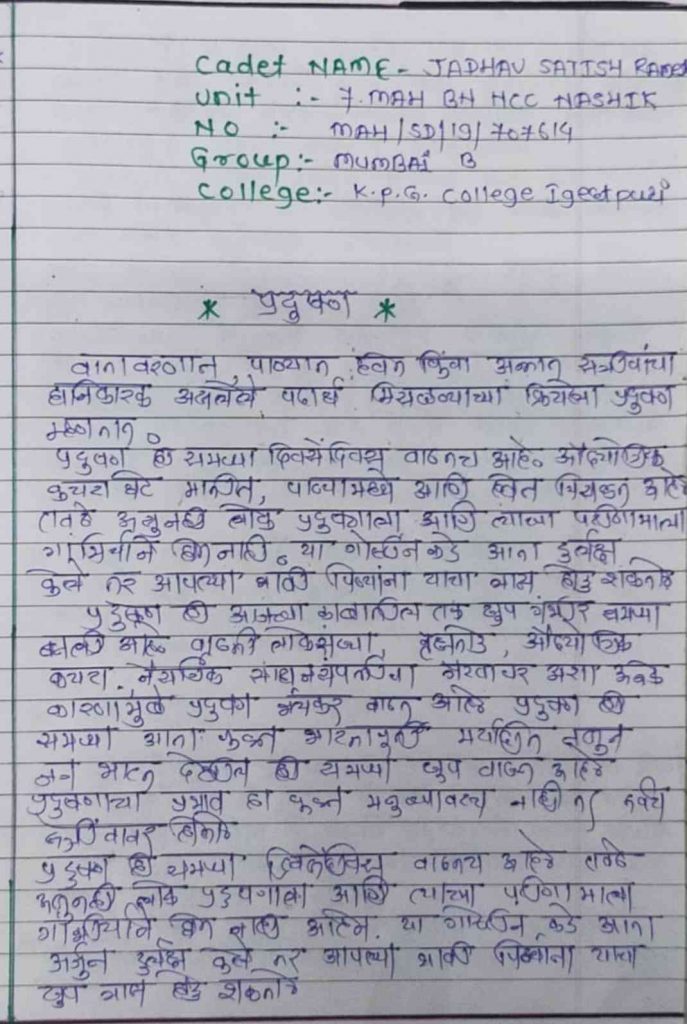 Cadet NAME - JADHAV SATISH RAMES
Unit :- 7. MAH BN NCC NASHIK
NO :- MAH/SD/19/707614
Group:- MUMBAI B
College:- K.P.G. College Igeatpuri
* प्रदुषण *
वातावरणात, पाण्यात, हवेत किंवा अन्नात सजीवांचा
हानिकारक असलेले पदार्थ मिसळण्याच्या क्रियेला प्रदुषण
म्हणतात.
प्रदुषण ही समस्या दिवसेंदिवस वाढतच आहे. औद्योगिक
कचरा थेट मातीत, पाण्यामध्ये आणि हवेत मिसळत आहे
तरीही अजुनही लोक प्रदुषणाला आणि त्याच्या परीणामाला
गांभिर्याने घेत नाही. या गोष्टींन कडे आता दुर्लक्ष
केले तर आपल्या भावी पिढ्यांना याचा त्रास होऊ शकतो
प्रदुषण ही आजच्या काळातील एक खुप गंभीर समस्या
बनली आहे वाढती लोकसंख्या, वृक्षतोड, औद्योगिक
कचरा, नैसर्गिक साधनसंपत्तीचा गैरवापर अशा अनेक
कारणामुळे प्रदुषण भयंकर वाढत आहे प्रदुषण ही
समस्या आता फक्त भारतापूर्ती मर्यादित नसून
जग भरात देखील ही समस्या खुप वाढत आहे
प्रदुषणाचा प्रभाव हा फक्त मनुष्यावरच नाही तर सर्वच
सजीवांवर होतो
प्रदुषण ही समस्या दिवसेंदिवस वाढतच आहे तरीही
अजुनही लोक प्रदुषणाला आणि त्याच्या परीणामाला
गांभीर्याने घेत नाही या गोष्टींन कडे आता
अजुन दुर्लक्ष केले तर आपल्या भावी पिढ्यांना याचा
खुप त्रास होऊ शकतो